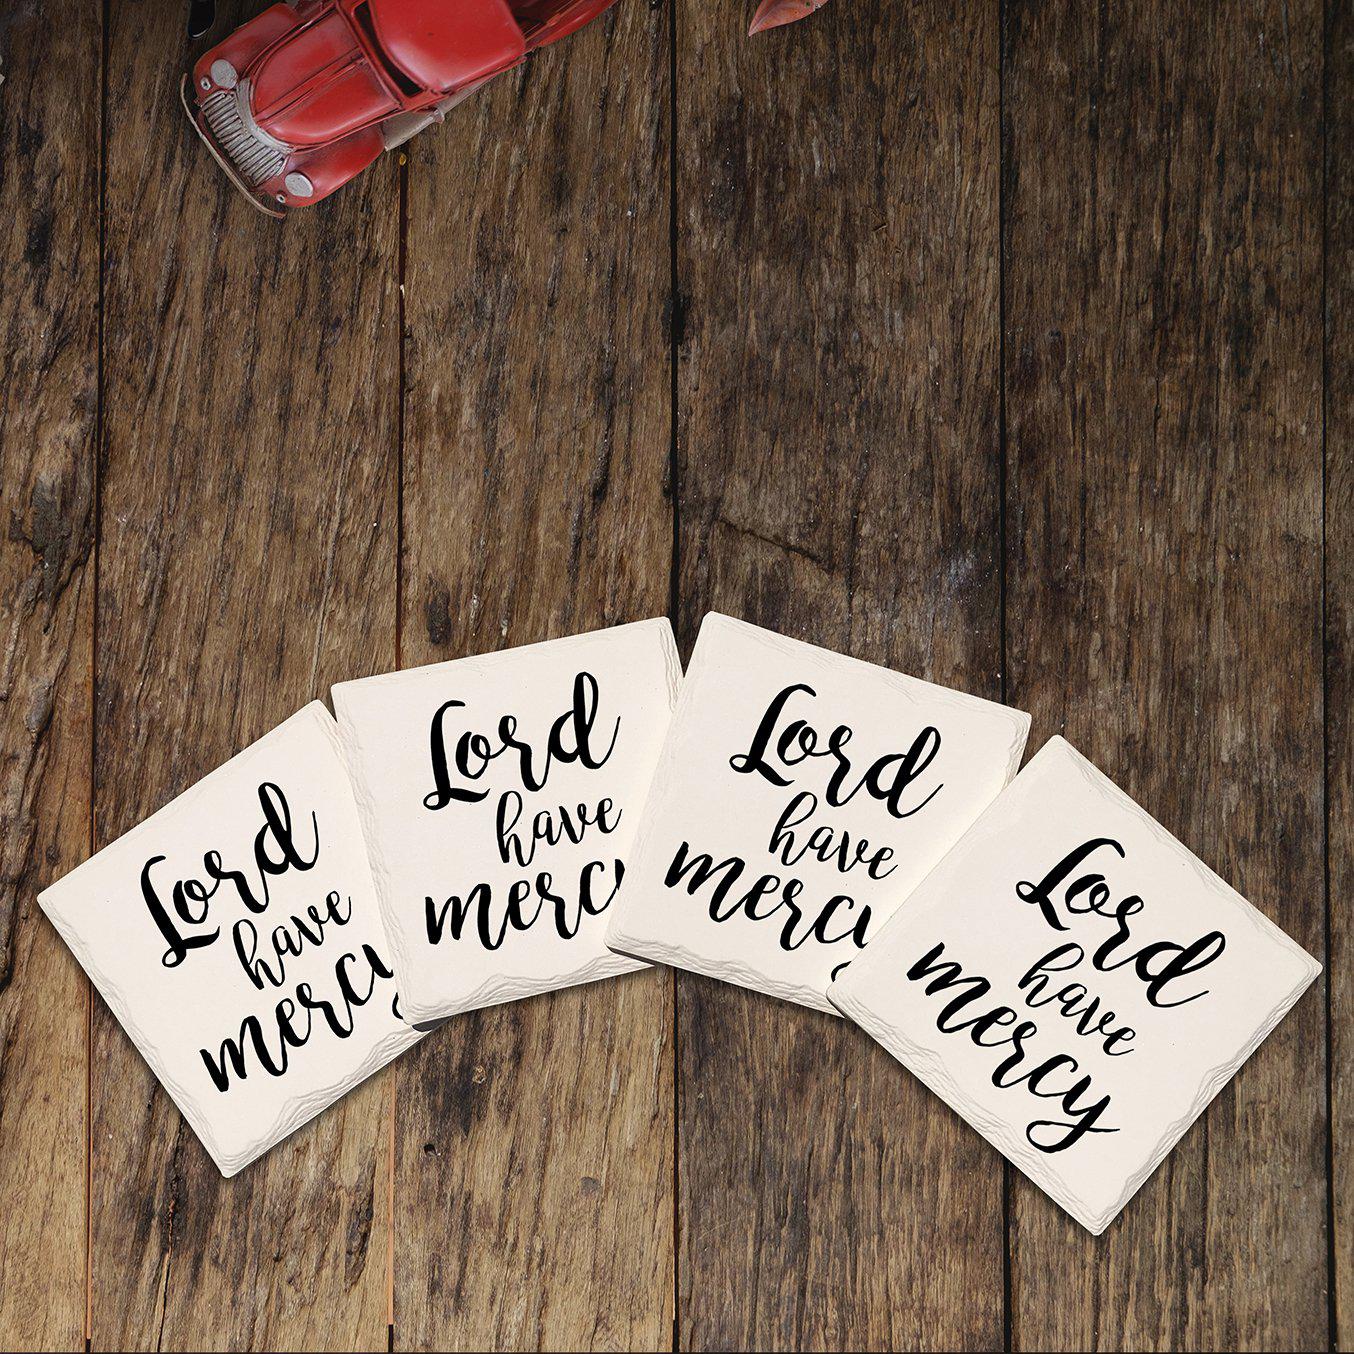 Lord
have
mercy
Lord
have
mercy
Lord
have
mercy
Lord
have
mercy